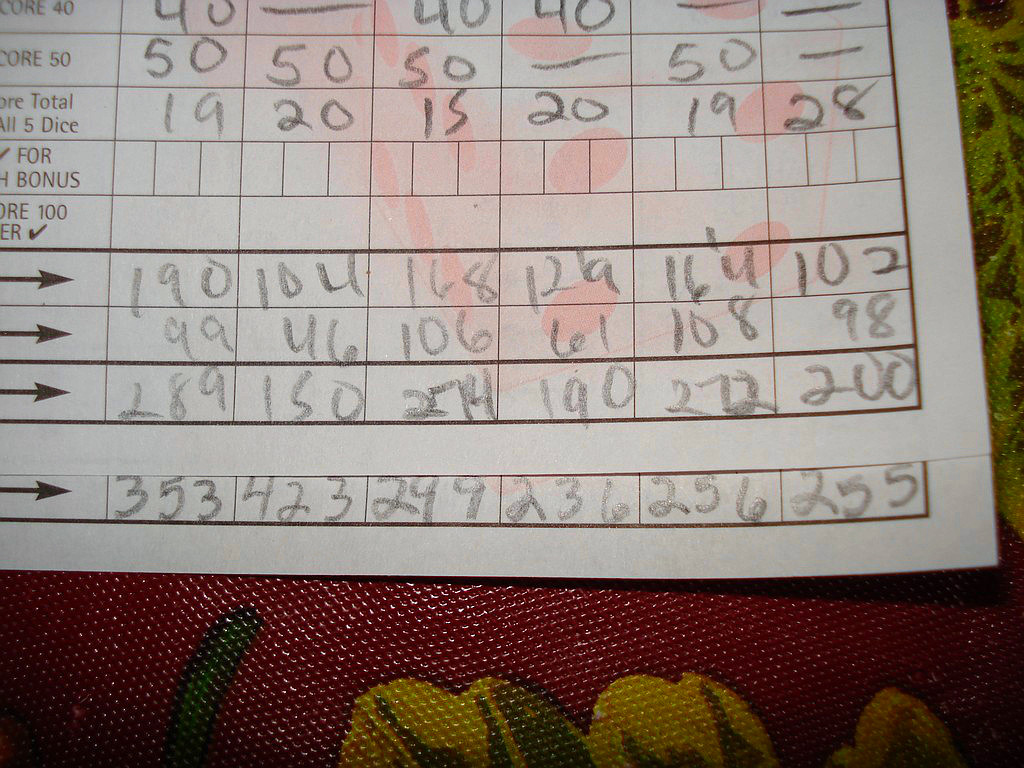 CORE 40 40 — 40 40 — —
CORE 50 50 50 50 — 50 —
ore Total
All 5 Dice 19 20 15 20 19 28
✓ FOR
H BONUS
ORE 100
ER ✓
190 104 168 129 164 102
99 46 106 61 108 98
289 150 274 190 272 200
353 423 249 236 256 255